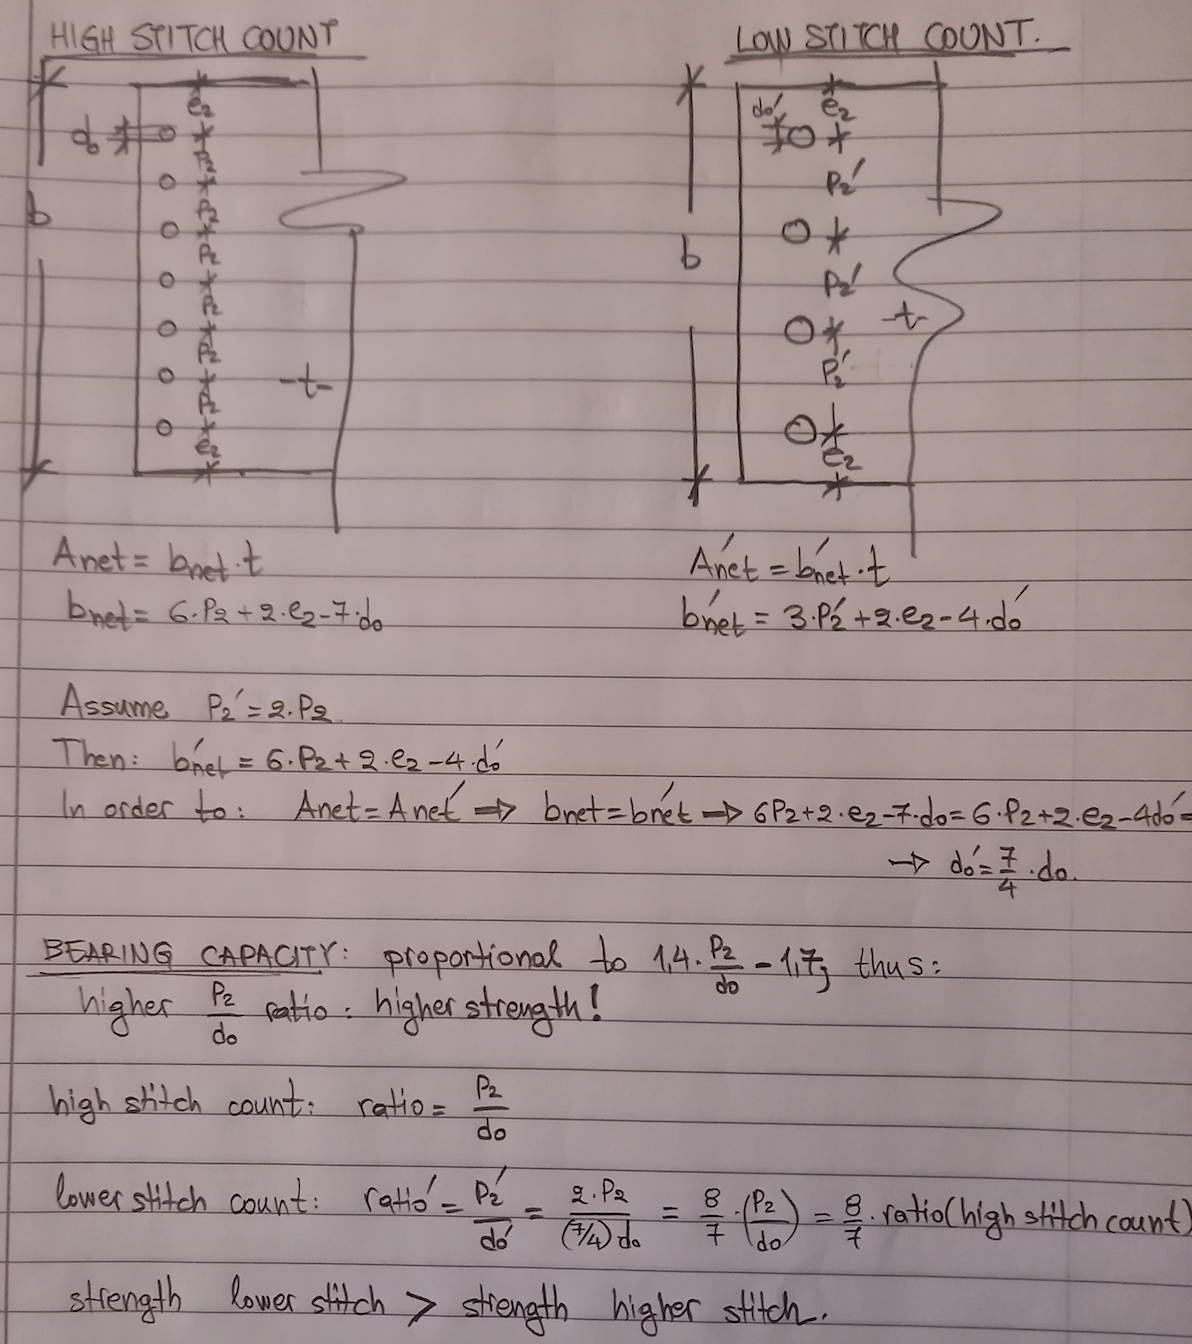 HIGH STITCH COUNT
e2
do
P2
P2
b
P2
P2
P2
P2
-t-
e2
LOW STITCH COUNT.
do'
e2
P2'
b
P2'
-t-
P2'
e2
Anet = bnet·t
bnet = 6·P2+2·e2-7·do
A'net = b'net·t
b'net = 3·P2'+2·e2-4·do'
Assume P2' = 2·P2
Then: b'net = 6·P2+2·e2-4·do'
In order to: Anet = Anet' ⇒ bnet=b'net → 6P2+2·e2-7·do=6·P2+2·e2-4do'=
→ do'=7/4·do.
BEARING CAPACITY: proportional to 1,4·P2/do - 1,7; thus:
higher P2/do ratio: higher strength!
high stitch count: ratio = P2/do
lower stitch count: ratio' = P2'/do' = 2·P2/(7/4)do = 8/7·(P2/do) = 8/7·ratio(high stitch count)
strength lower stitch > strength higher stitch.